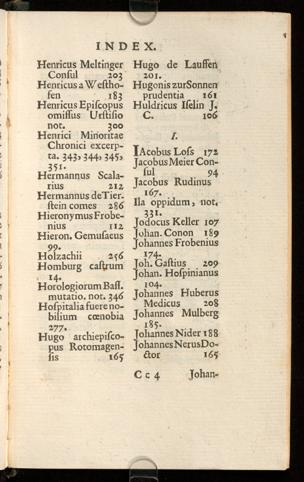 INDEX.
Henricus Meltinger
Consul 203
Henricus a Westho-
fen 183
Henricus Episcopus
omissus Urstisio
not. 300
Henrici Minoritae
Chronici excerp-
ta. 343, 344, 345,
351.
Hermannus Scala-
rius 212
Hermannus de Tier-
stein comes 286
Hieronymus Frobe-
nius 112
Hieron. Gemusaeus
99.
Holzachii 256
Homburg castrum
14.
Horologiorum Basl.
mutatio. not. 346
Hospitalia fuere no-
bilium cœnobia
277.
Hugo archiepisco-
pus Rotomagen-
sis 165
Hugo de Lauffen
201.
Hugonis zur Sonnen
prudentia 161
Huldricus Iselin J.
C. 106
I.
IAcobus Loss 172
Jacobus Meier Con-
sul 94
Jacobus Rudinus
167.
Ila oppidum, not.
331.
Jodocus Keller 107
Johan. Conon 189
Johannes Frobenius
174.
Joh. Gastius 209
Johan. Hospinianus
104.
Johannes Huberus
Medicus 208
Johannes Mulberg
185.
Johannes Nider 188
Johannes Nerus Do-
ctor 165
Cc 4 Johan-